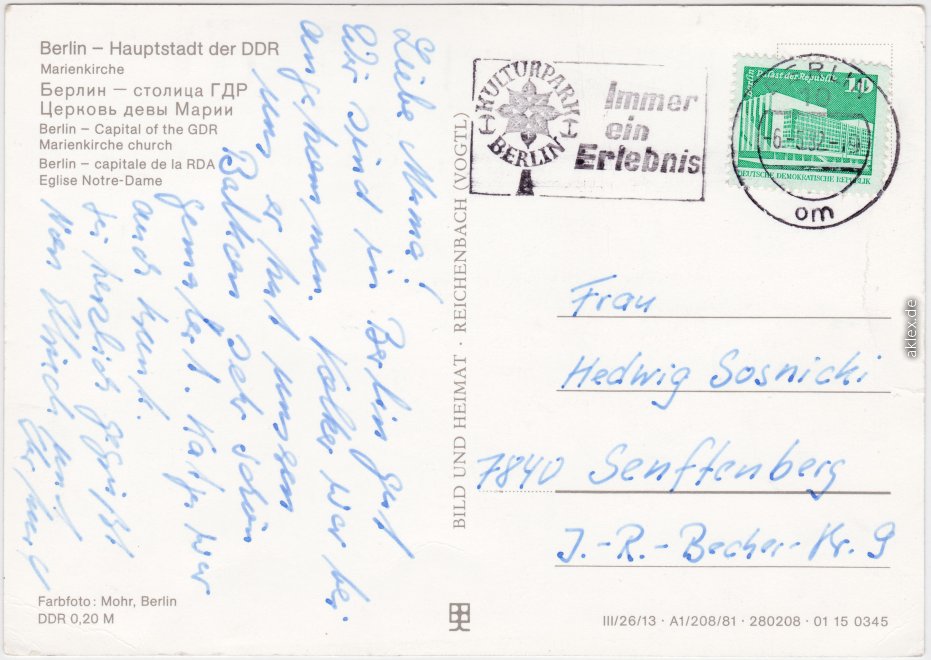 Berlin – Hauptstadt der DDR
Marienkirche
Берлин — столица ГДР
Церковь девы Марии
Berlin – Capital of the GDR
Marienkirche church
Berlin – capitale de la RDA
Eglise Notre-Dame
Liebe Mama!
Wir sind in Berlin gut
angekommen. Volker war hier
und er hat unseren
Balkon sehr schön
gemalert. Katja war
auch krank.
Sei herzlich gegrüßt
von Ulrich und
Farbfoto: Mohr, Berlin
DDR 0,20 M
BILD UND HEIMAT · REICHENBACH (VOGTL)
KULTURPARK
BERLIN
Immer
ein
Erlebnis
Berlin Palast der Republik
10
DEUTSCHE DEMOKRATISCHE REPUBLIK
om
Frau
Hedwig Sosnicki
7840 Senftenberg
J.-R.-Becher-Str. 9
III/26/13 · A1/208/81 · 280208 · 01 15 0345
aklex.de